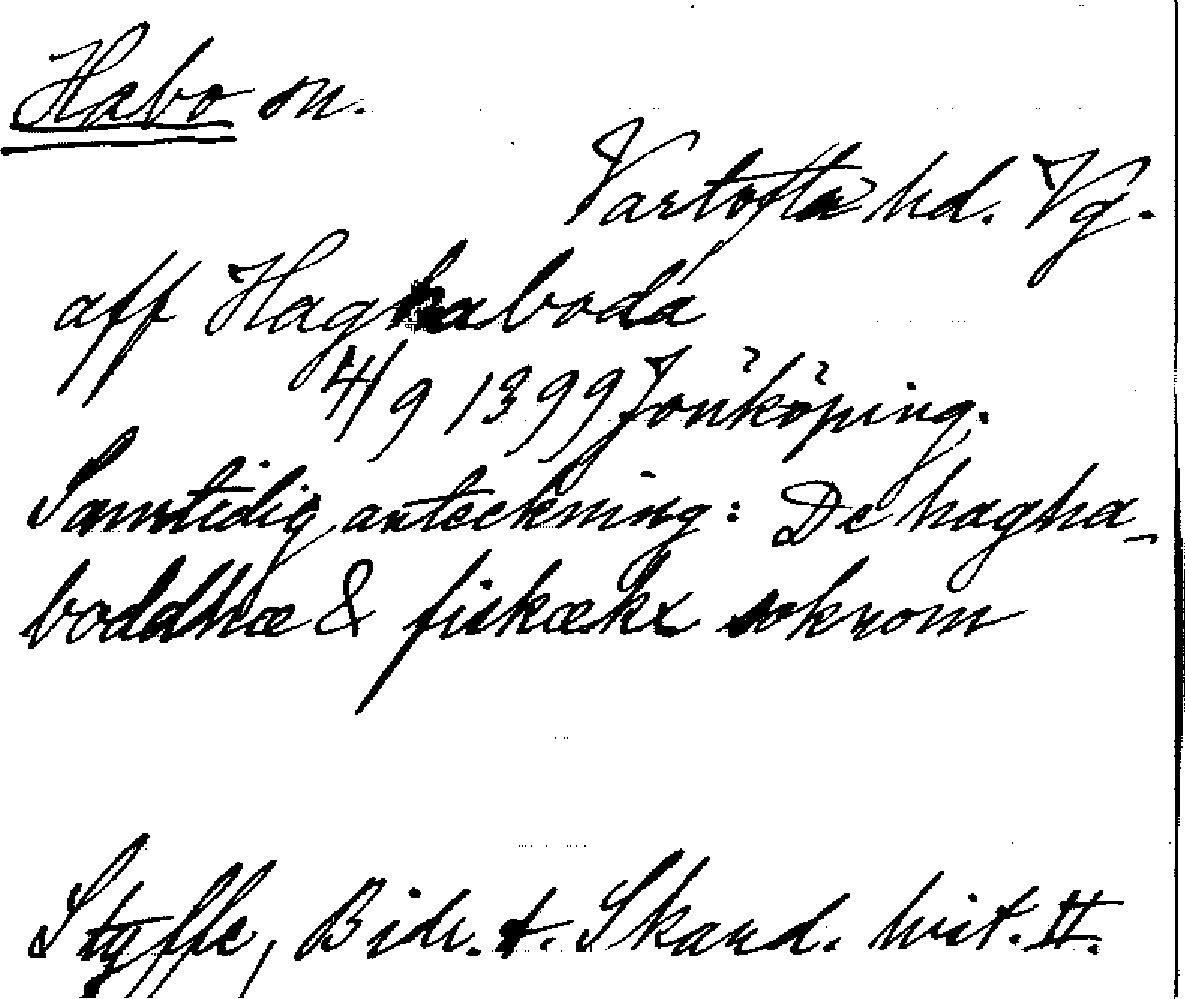 Habo sn.
Vartofta hd. Vg.
aff Haghaboda
4/9 1399 Jönköping.
Samtidig anteckning: De hagha-
boddhæ & fiskækx soknom
Styffe, Bidr. t. Skand. hist. II.